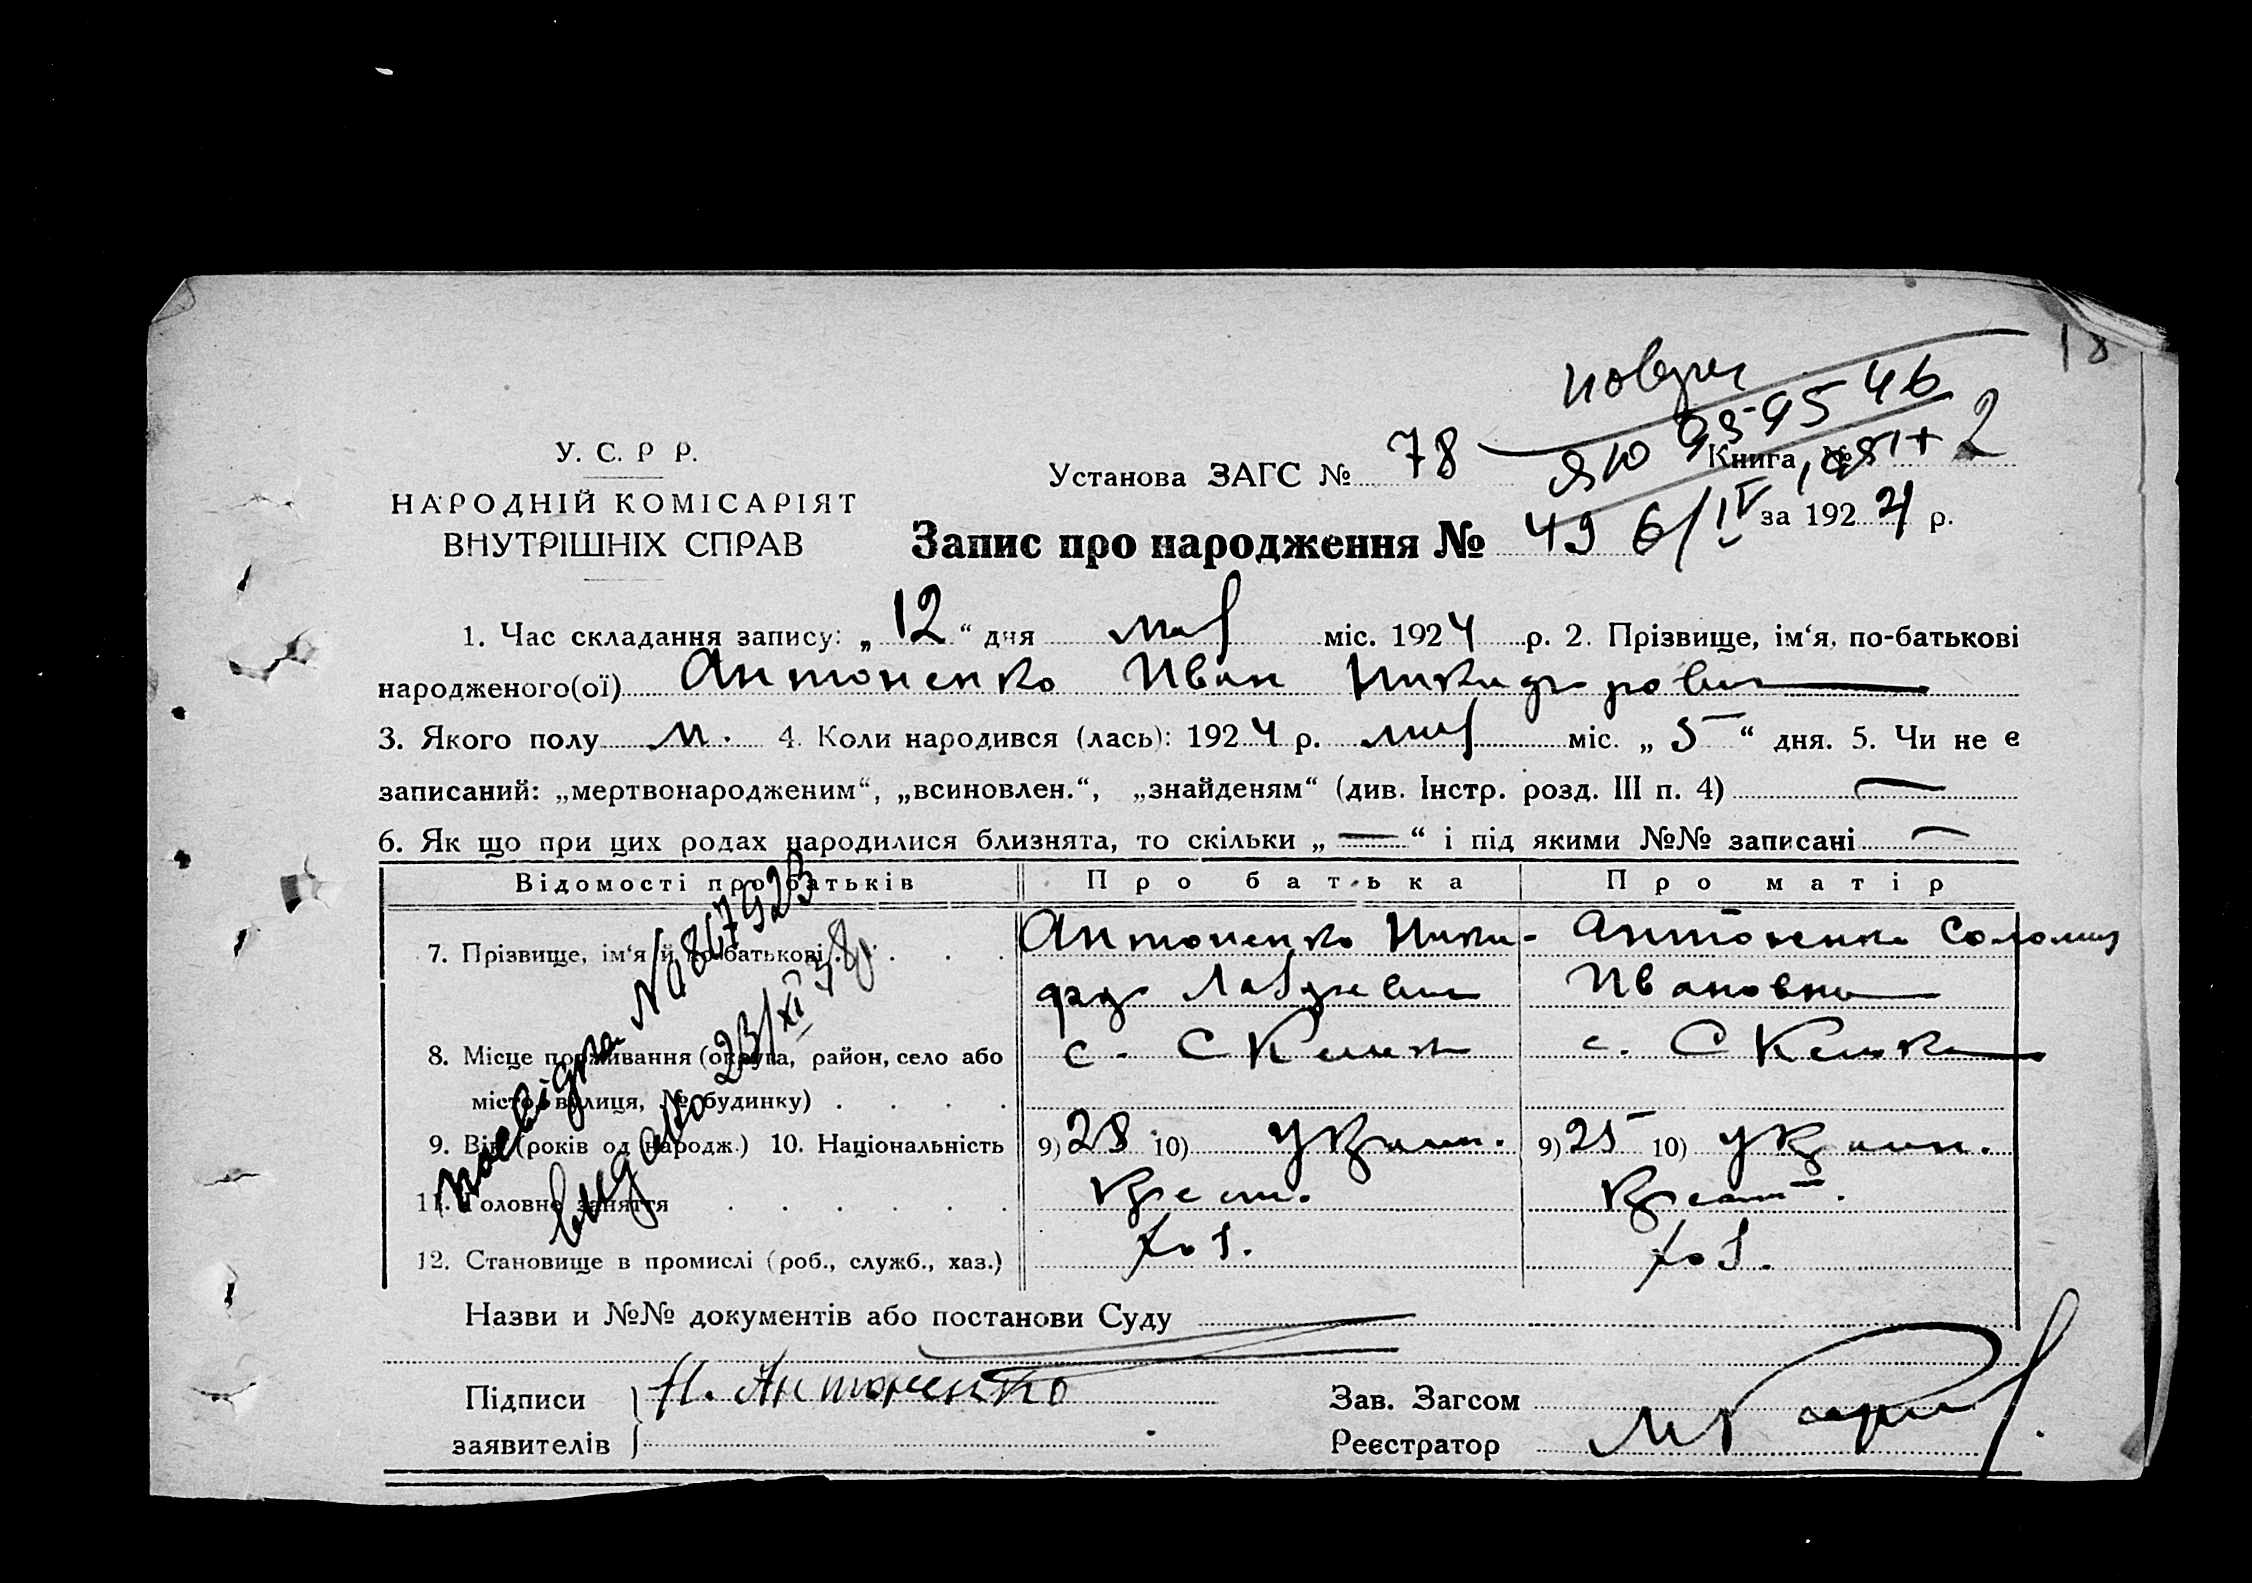 18
повторн
ЯЮ 959546
У. С. Р Р.
Установа ЗАГС № 78 Книга № 2
НАРОДНІЙ КОМІСАРІЯТ
ВНУТРІШНІХ СПРАВ
Запис про народження № 49 6/IV за 1924 р.
1. Час складання запису: „ 12 “ дня мар міс. 1924 р. 2. Прізвище, ім‘я, по-батькові
народженого(ої) Антоненко Иван Никифорович
3. Якого полу м. 4. Коли народився (лась): 1924 р. мар міс. „ 5 “ дня. 5. Чи не є
записаний: „мертвонародженим“, „всиновлен.“, „знайденям“ (див. Інстр. розд. III п. 4) —
6. Як що при цих родах народилися близнята, то скільки „ — “ і під якими №№ записані —
Відомості про батьків Про батька Про матір
7. Прізвище, ім‘я й по-батькові Антоненко Ники- Антоненко Соломия
фор Лавр Ивановна
8. Місце проживання (округа, район, село або с. Скельки с. Скельки
місто, вулиця, № будинку)
9. Вік (років од народж.) 10. Національність 9) 28 10) Украин. 9) 25 10) Украин.
11. Головне заняття Крест. Крест.
12. Становище в промислі (роб., служб., хаз.) хоз. хоз.
Назви и №№ документів або постанови Суду
Підписи Н. Антоненко Зав. Загсом
заявителів Реєстратор
посвідка № 0847923
видано 23/XI 48